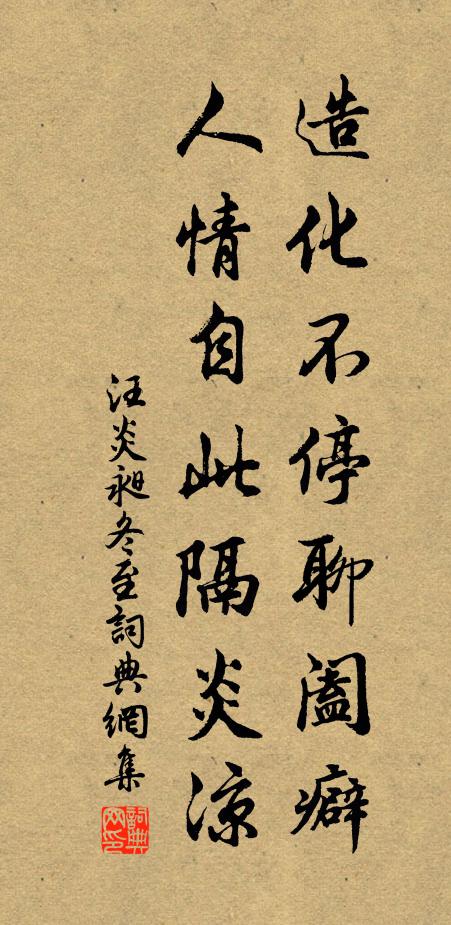 造化不停聊阖癖
人情自此隔炎涼
汪炎昶冬至詞典網集
詞典网印